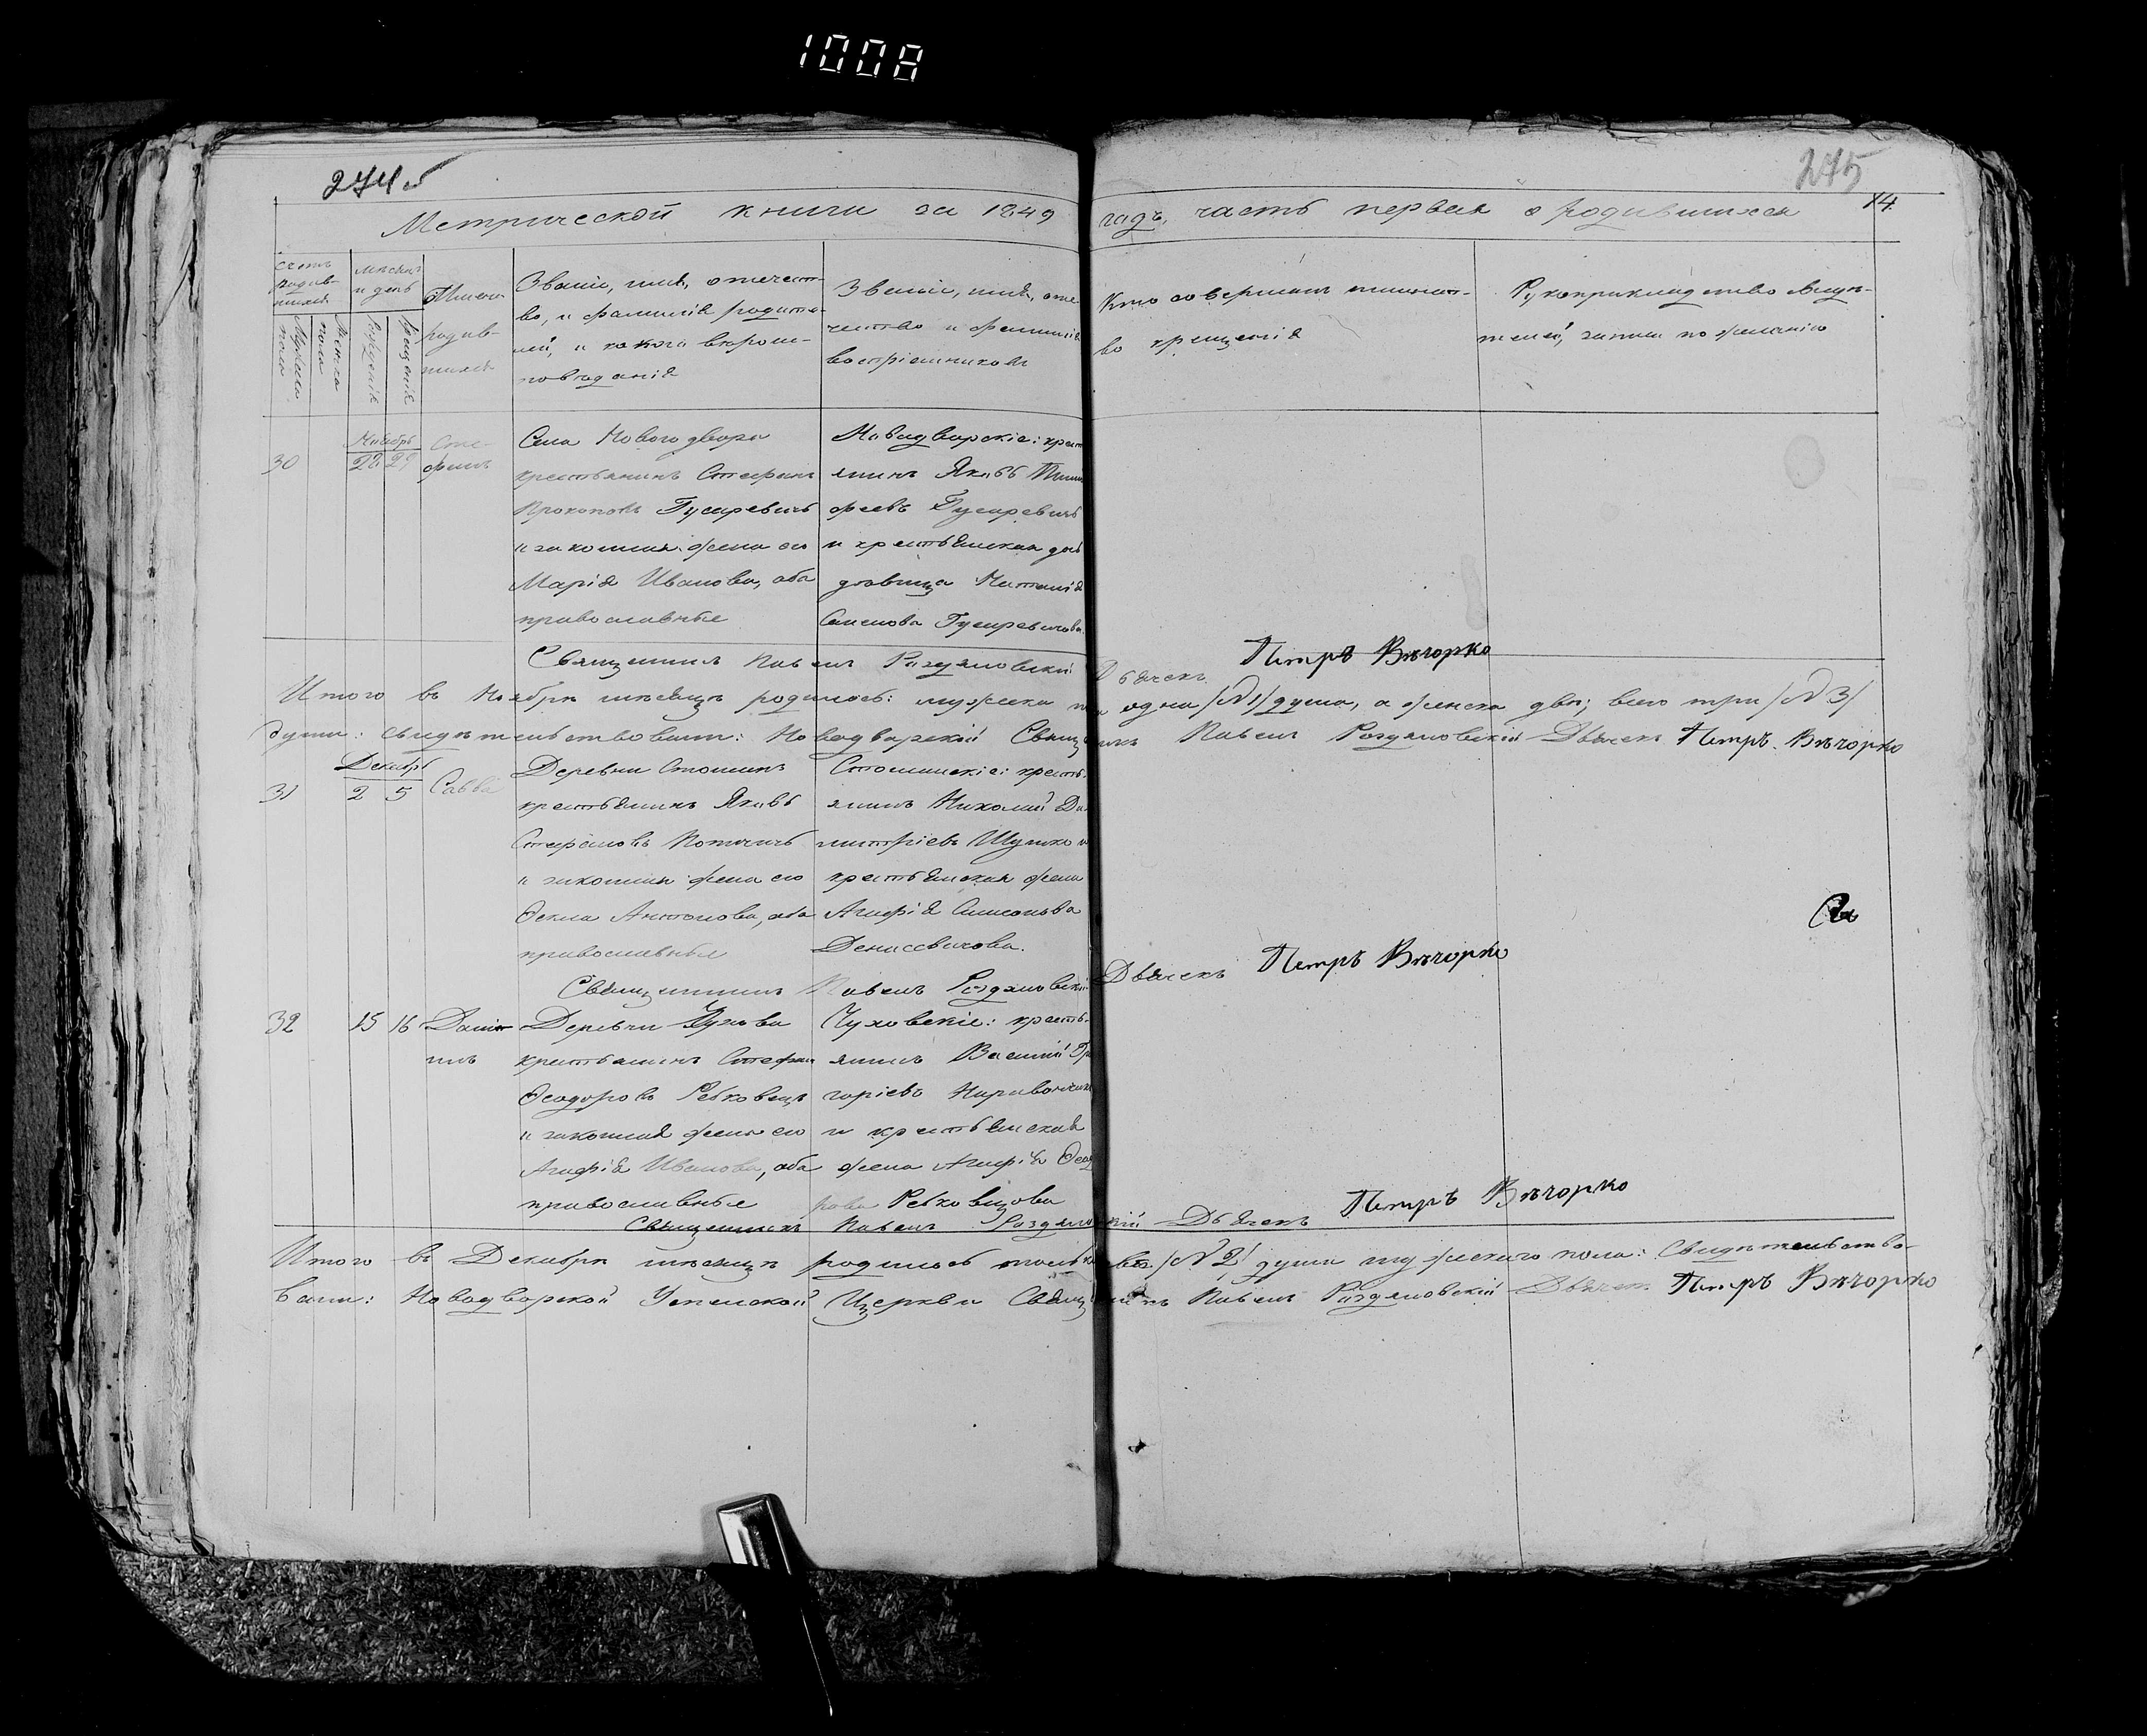 1008
274 об
275
14
Метрической книги за 1849 годъ, часть первая о родившихся
Счетъ родив-
шихся
Мужска пола
Женска пола
Мѣсяцъ
и день
Рожденія
Крещенія
Имена
родив-
шихся
Званіе, имя, отечест-
во, и фамилія родите-
лей, и какого вѣроис-
повѣданія
Званіе, имя, оте-
чество и фамилія
воспріемниковъ
Кто совершалъ таинст-
во крещенія
Рукоприкладство свидѣ-
телей записи по желанію
Ноябрь
30
28 29
Сте-
фанъ
Села Нового двора
крестьянинъ Стефанъ
Прокоповъ Гусаревичъ
и законная жена его
Марія Иванова, оба
православные
Новодворскіе: крест
янинъ Яковъ Тимо
феевъ Гусаревичъ
и крестьянская
девица Наталія
Семенова Гусаревичова.
Священникъ Павелъ Дьячекъ Петръ Вѣчорко
Итого въ Ноябрѣ мѣсяцѣ родилось: мужска одна /№1/ душа, а женска двѣ; всего три /№3/
души: свидѣтельствовали: Новодворскій Священникъ Павелъ Дьячекъ Петръ Вѣчорко
Декабрь
31
2 5
Савва
Деревни Стошинъ
крестьянинъ Яковъ
Стефановъ
и законная жена его
Ѳекла Антонова, оба
православные
Стошинскіе: кресть-
янинъ Николай Ди-
митріевъ Шумко и
крестьянская жена
Агафія Симеонова
Денисевичова.
Священникъ Павелъ Дьячекъ Петръ Вѣчорко
32
15 16
Дані-
илъ
Деревни Чухова
крестьянинъ Стефанъ
Ѳеодоровъ Ребковецъ
и законная жена его
Агафія Иванова, оба
православные
Чуховскіе: кресть-
янинъ Василій Гри
горіевъ
и крестьянская
жена Агафія Ѳеод
рова Ребковцова
Священникъ Павелъ Дьячекъ Петръ Вѣчорко
Итого въ Декабрѣ мѣсяцѣ родилось только /№2/ души мужескаго пола: Свидѣтельство-
вали: Новодворской Успенской Церкви Священникъ Павелъ Дьячекъ Петръ Вѣчорко